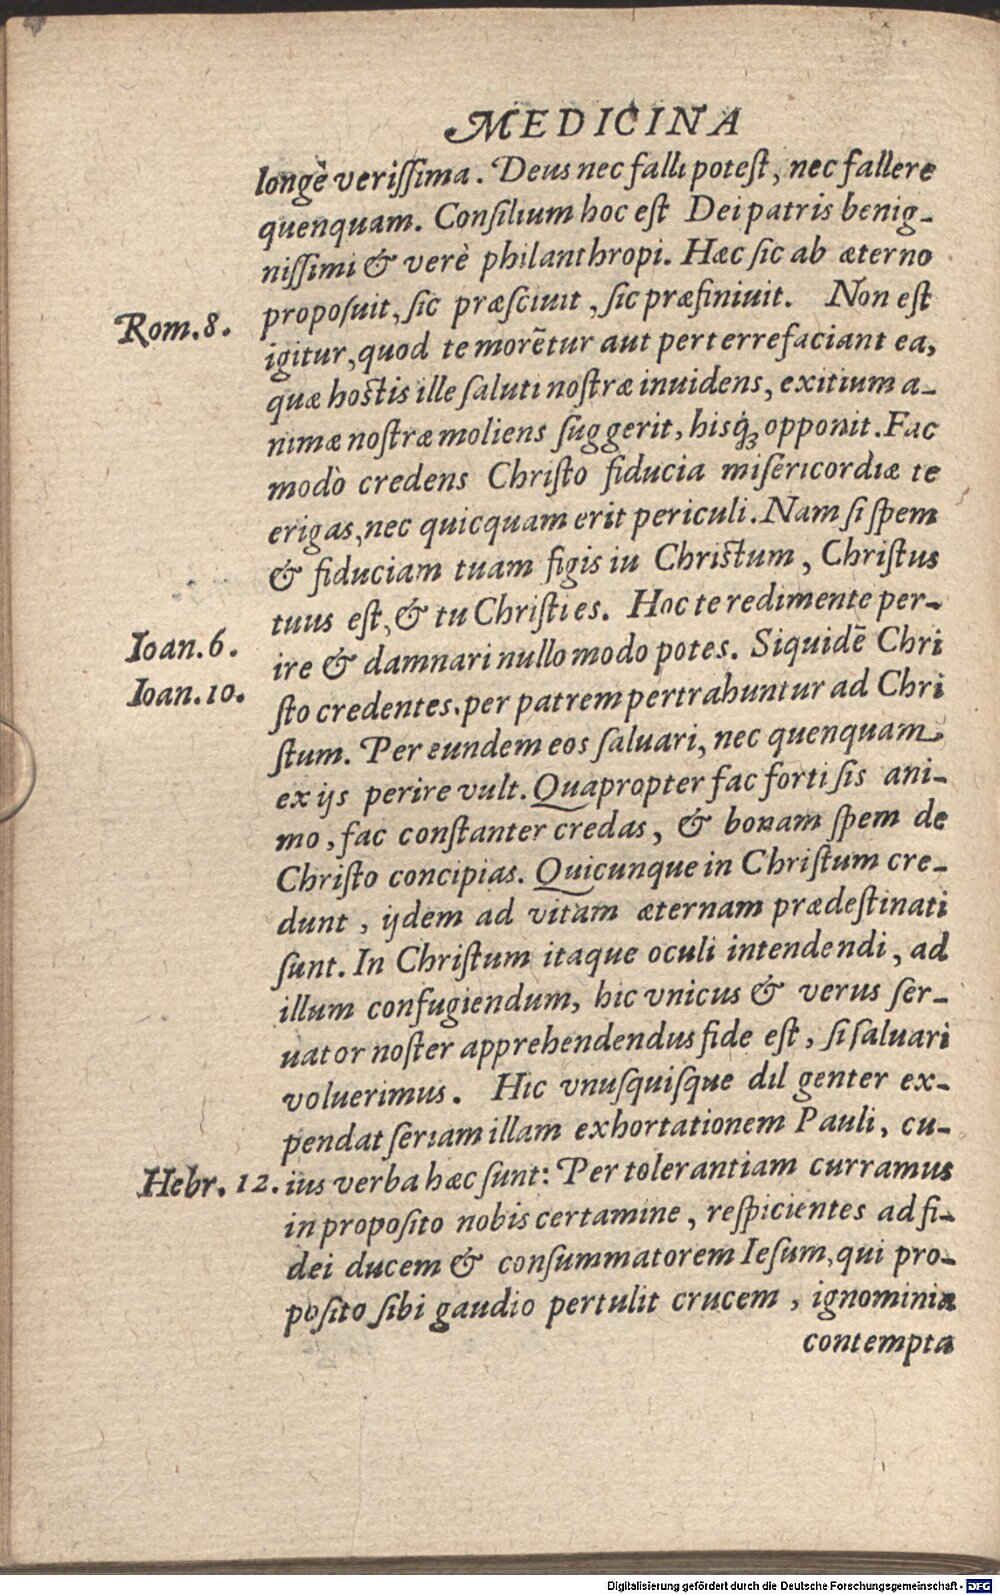 MEDICINA
longè veriſſima. Deus nec falli poteſt, nec fallere
quenquam. Conſilium hoc eſt Dei patris benig-
niſſimi & verè philanthropi. Hæc ſic ab æterno
propoſuit, ſic præſciuit, ſic præfiniuit. Non eſt
Rom. 8.
igitur, quod te morẽtur aut perterrefaciant ea,
quæ hoſtis ille ſaluti noſtræ inuidens, exitium a-
nimæ noſtræ moliens ſuggerit, hisq́; opponit. Fac
modò credens Chriſto fiducia miſericordiæ te
erigas, nec quicquam erit periculi. Nam ſi ſpem
& fiduciam tuam figis iu Chriſtum, Chriſtus
tuus eſt, & tu Chriſti es. Hoc te redimente per-
Ioan. 6.
ire & damnari nullo modo potes. Siquidẽ Chri
Ioan. 10.
ſto credentes. per patrem pertrahuntur ad Chri
ſtum. Per eundem eos ſaluari, nec quenquam
ex ijs perire vult. Quapropter fac forti ſis ani-
mo, fac conſtanter credas, & bonam ſpem de
Chriſto concipias. Quicunque in Chriſtum cre-
dunt, ijdem ad vitam æternam prædeſtinati
ſunt. In Chriſtum itaque oculi intendendi, ad
illum confugiendum, hic vnicus & verus ſer-
uator noſter apprehendendus fide eſt, ſi ſaluari
voluerimus. Hic vnuſquiſque dil genter ex-
pendat ſeriam illam exhortationem Pauli, cu-
Hebr. 12.
ius verba hæc ſunt: Per tolerantiam curramus
in propoſito nobis certamine, reſpicientes ad fi-
dei ducem & conſummatorem Ieſum, qui pro-
poſito ſibi gaudio pertulit crucem, ignominia
contempta
Digitalisierung gefördert durch die Deutsche Forschungsgemeinschaft - DFG